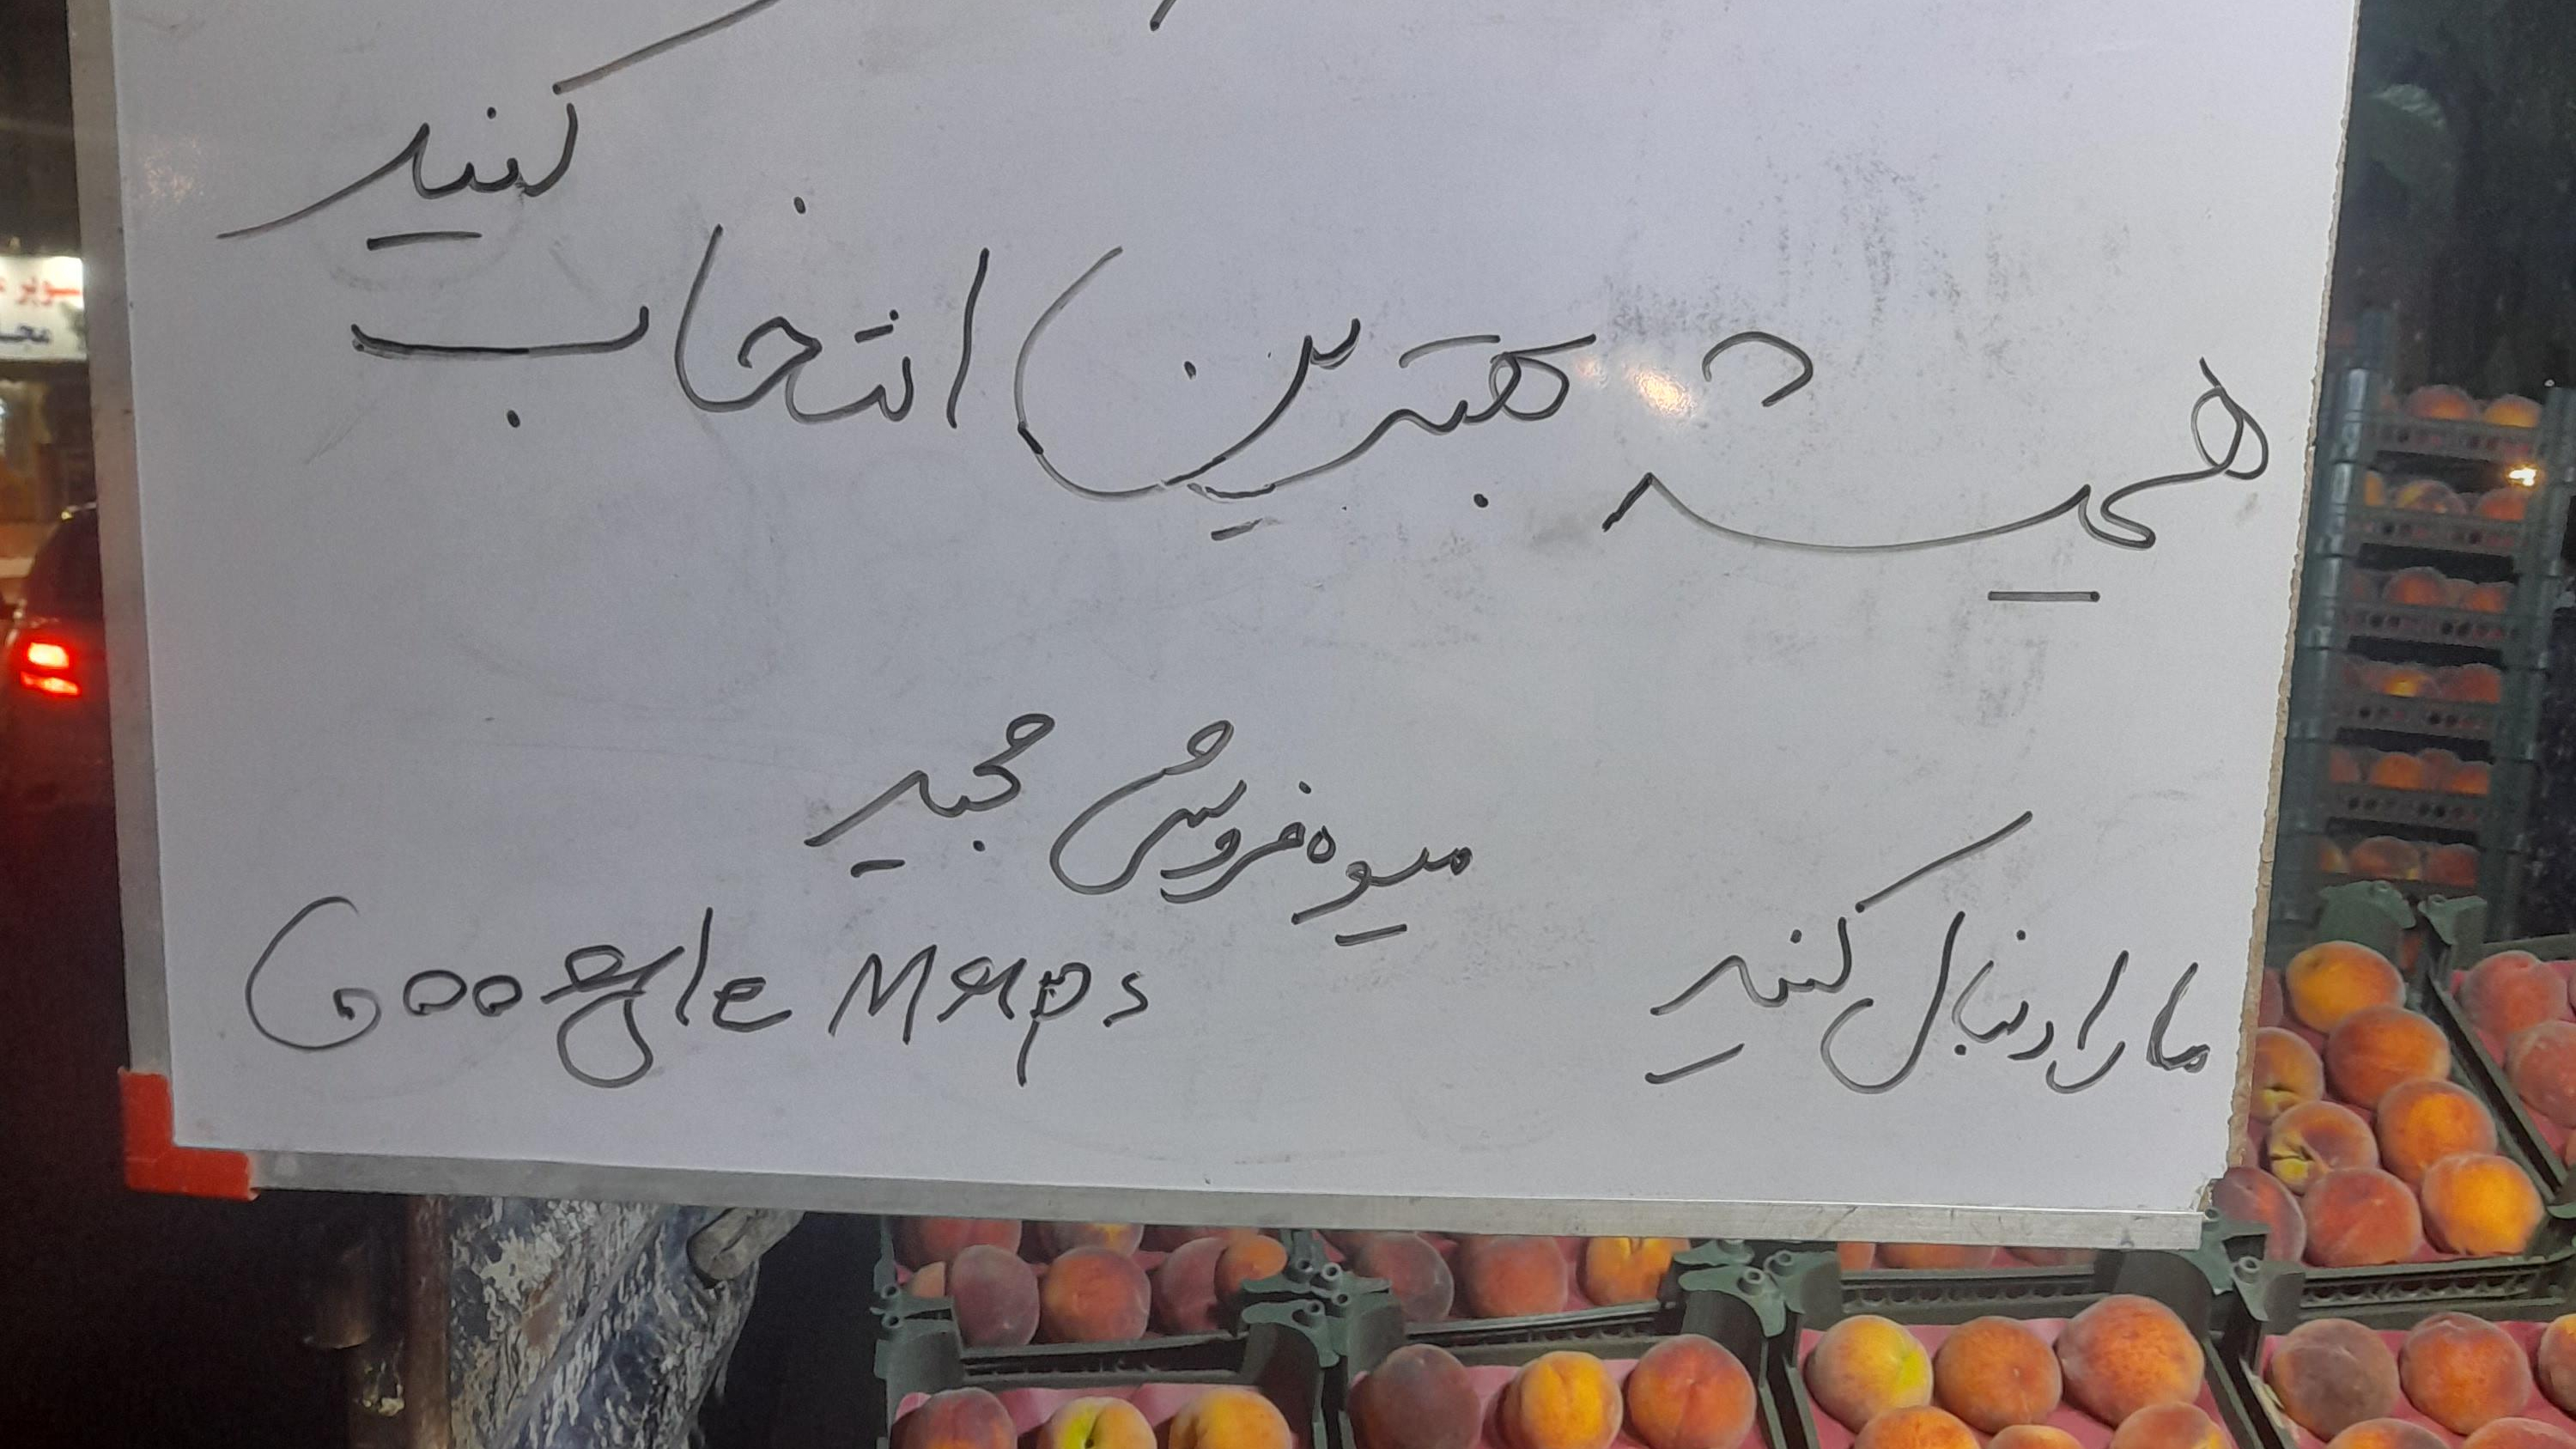 همیشه بهترین انتخاب کنید
میوه فروش مجید
ما را دنبال کنید
Google Maps
سوپر